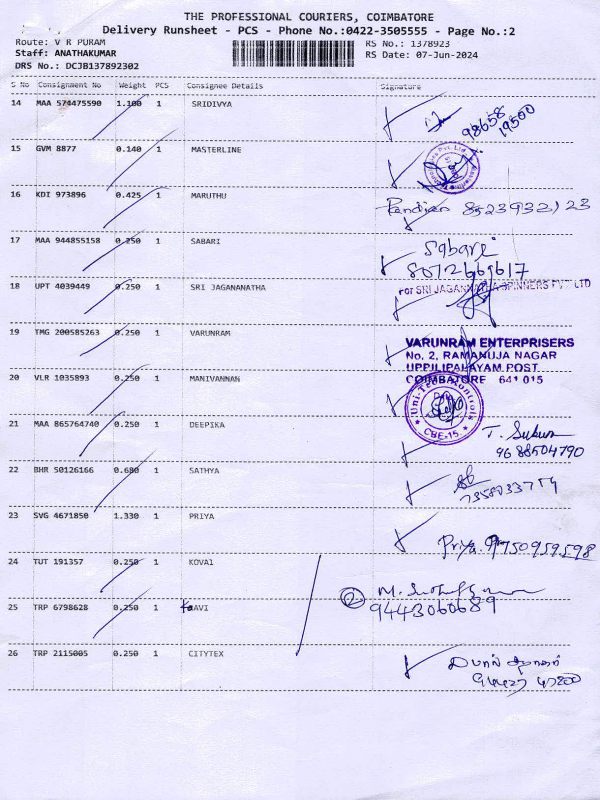 THE PROFESSIONAL COURIERS, COIMBATORE
Delivery Runsheet - PCS - Phone No.:0422-3505555 - Page No.:2
Route: V R PURAM
RS No.: 1378923
Staff: ANATHAKUMAR
RS Date: 07-Jun-2024
DRS No.: DCJB137892302
S No Consignment No Weight PCS Consignee Details Signature
14 MAA 574475590 1.100 1 SRIDIVYA
98658
19500
15 GVM 8877 0.140 1 MASTERLINE
16 KDI 973896 0.425 1 MARUTHU
Pandian 8523932123
17 MAA 944855158 0.250 1 SABARI
Sabari
8072669617
18 UPT 4039449 0.250 1 SRI JAGANANATHA
For SRI JAGANNATHA SPINNERS PVT LTD
19 TMG 200585263 0.250 1 VARUNRAM
VARUNRAM ENTERPRISERS
No. 2, RAMANUJA NAGAR
UPPILIPALAYAM POST
COIMBATORE 641 015
20 VLR 1035893 0.250 1 MANIVANNAN
Uni-Tech Controls
CBE-15
21 MAA 865764740 0.250 1 DEEPIKA
9688504790
22 BHR 50126166 0.680 1 SATHYA
23 SVG 4671850 1.330 1 PRIYA
Priya. 9750959598
24 TUT 191357 0.250 1 KOVAI
25 TRP 6798628 0.250 1 KAAVI
2
9443060689
26 TRP 2115005 0.250 1 CITYTEX